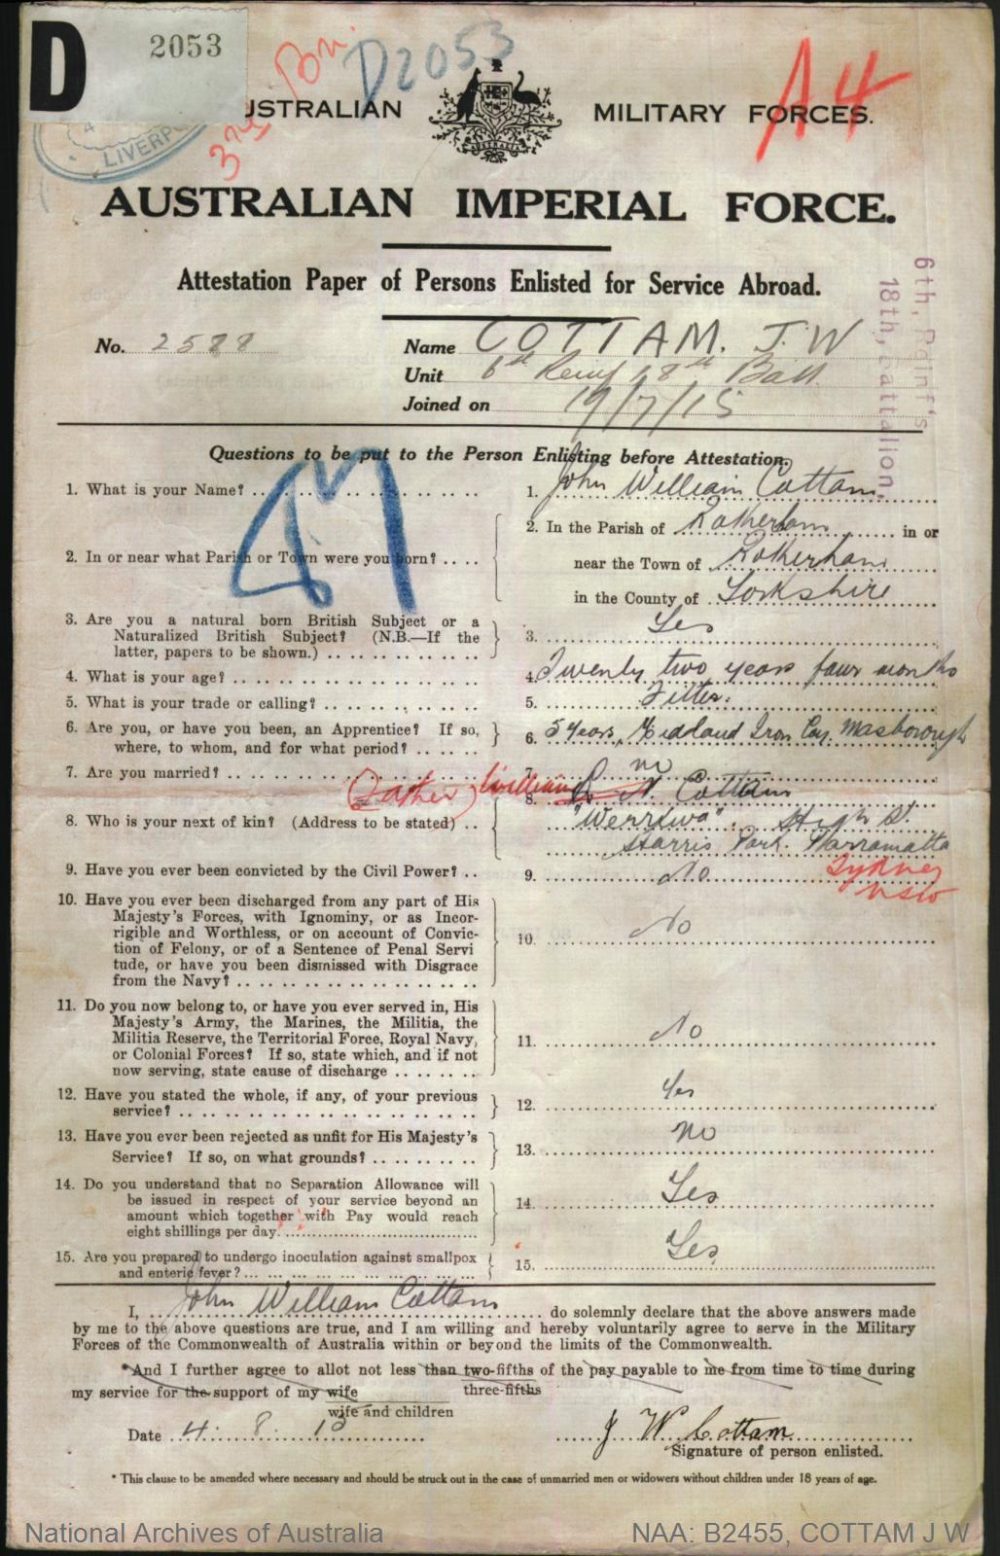 D 2053
3rd Bn. D2053
A4
LIVERP
USTRALIAN MILITARY FORCES.
AUSTRALIAN IMPERIAL FORCE.
Attestation Paper of Persons Enlisted for Service Abroad.
6th, Reinf's
18th, Battalion.
No. 2588 Name COTTAM. J. W
Unit 6th Reinf 18th Batt.
Joined on 19/7/15
Questions to be put to the Person Enlisting before Attestation.
1. What is your Name? 1. John William Cottam
2. In or near what Parish or Town were you born? 2. In the Parish of Rotherham in or
near the Town of Rotherham
in the County of Yorkshire
3. Are you a natural born British Subject or a
Naturalized British Subject? (N.B.—If the
latter, papers to be shown.) 3. Yes
4. What is your age? 4. Twenty two years four months
5. What is your trade or calling? 5. Fitter.
6. Are you, or have you been, an Apprentice? If so,
where, to whom, and for what period? 6. 5 Years, Midland Iron Coy. Masborough
7. Are you married? 7. no
8. Who is your next of kin? (Address to be stated) 8. (Father) William Cottam
"Werriwa". High St.
Harris Park. Parramatta
Sydney
NSW
9. Have you ever been convicted by the Civil Power? 9. No
10. Have you ever been discharged from any part of His
Majesty's Forces, with Ignominy, or as Incor-
rigible and Worthless, or on account of Convic-
tion of Felony, or of a Sentence of Penal Servi
tude, or have you been dismissed with Disgrace
from the Navy? 10. No
11. Do you now belong to, or have you ever served in, His
Majesty's Army, the Marines, the Militia, the
Militia Reserve, the Territorial Force, Royal Navy,
or Colonial Forces? If so, state which, and if not
now serving, state cause of discharge 11. No
12. Have you stated the whole, if any, of your previous
service? 12. Yes
13. Have you ever been rejected as unfit for His Majesty's
Service? If so, on what grounds? 13. No
14. Do you understand that no Separation Allowance will
be issued in respect of your service beyond an
amount which together with Pay would reach
eight shillings per day. 14. Yes
15. Are you prepared to undergo inoculation against smallpox
and enteric fever? 15. Yes
I, John William Cottam do solemnly declare that the above answers made
by me to the above questions are true, and I am willing and hereby voluntarily agree to serve in the Military
Forces of the Commonwealth of Australia within or beyond the limits of the Commonwealth.
*And I further agree to allot not less than two-fifths of the pay payable to me from time to time during
three-fifths
my service for the support of my wife
wife and children
Date 4. 8. 15
J W Cottam
Signature of person enlisted.
* This clause to be amended where necessary and should be struck out in the case of unmarried men or widowers without children under 18 years of age.
National Archives of Australia NAA: B2455, COTTAM J W